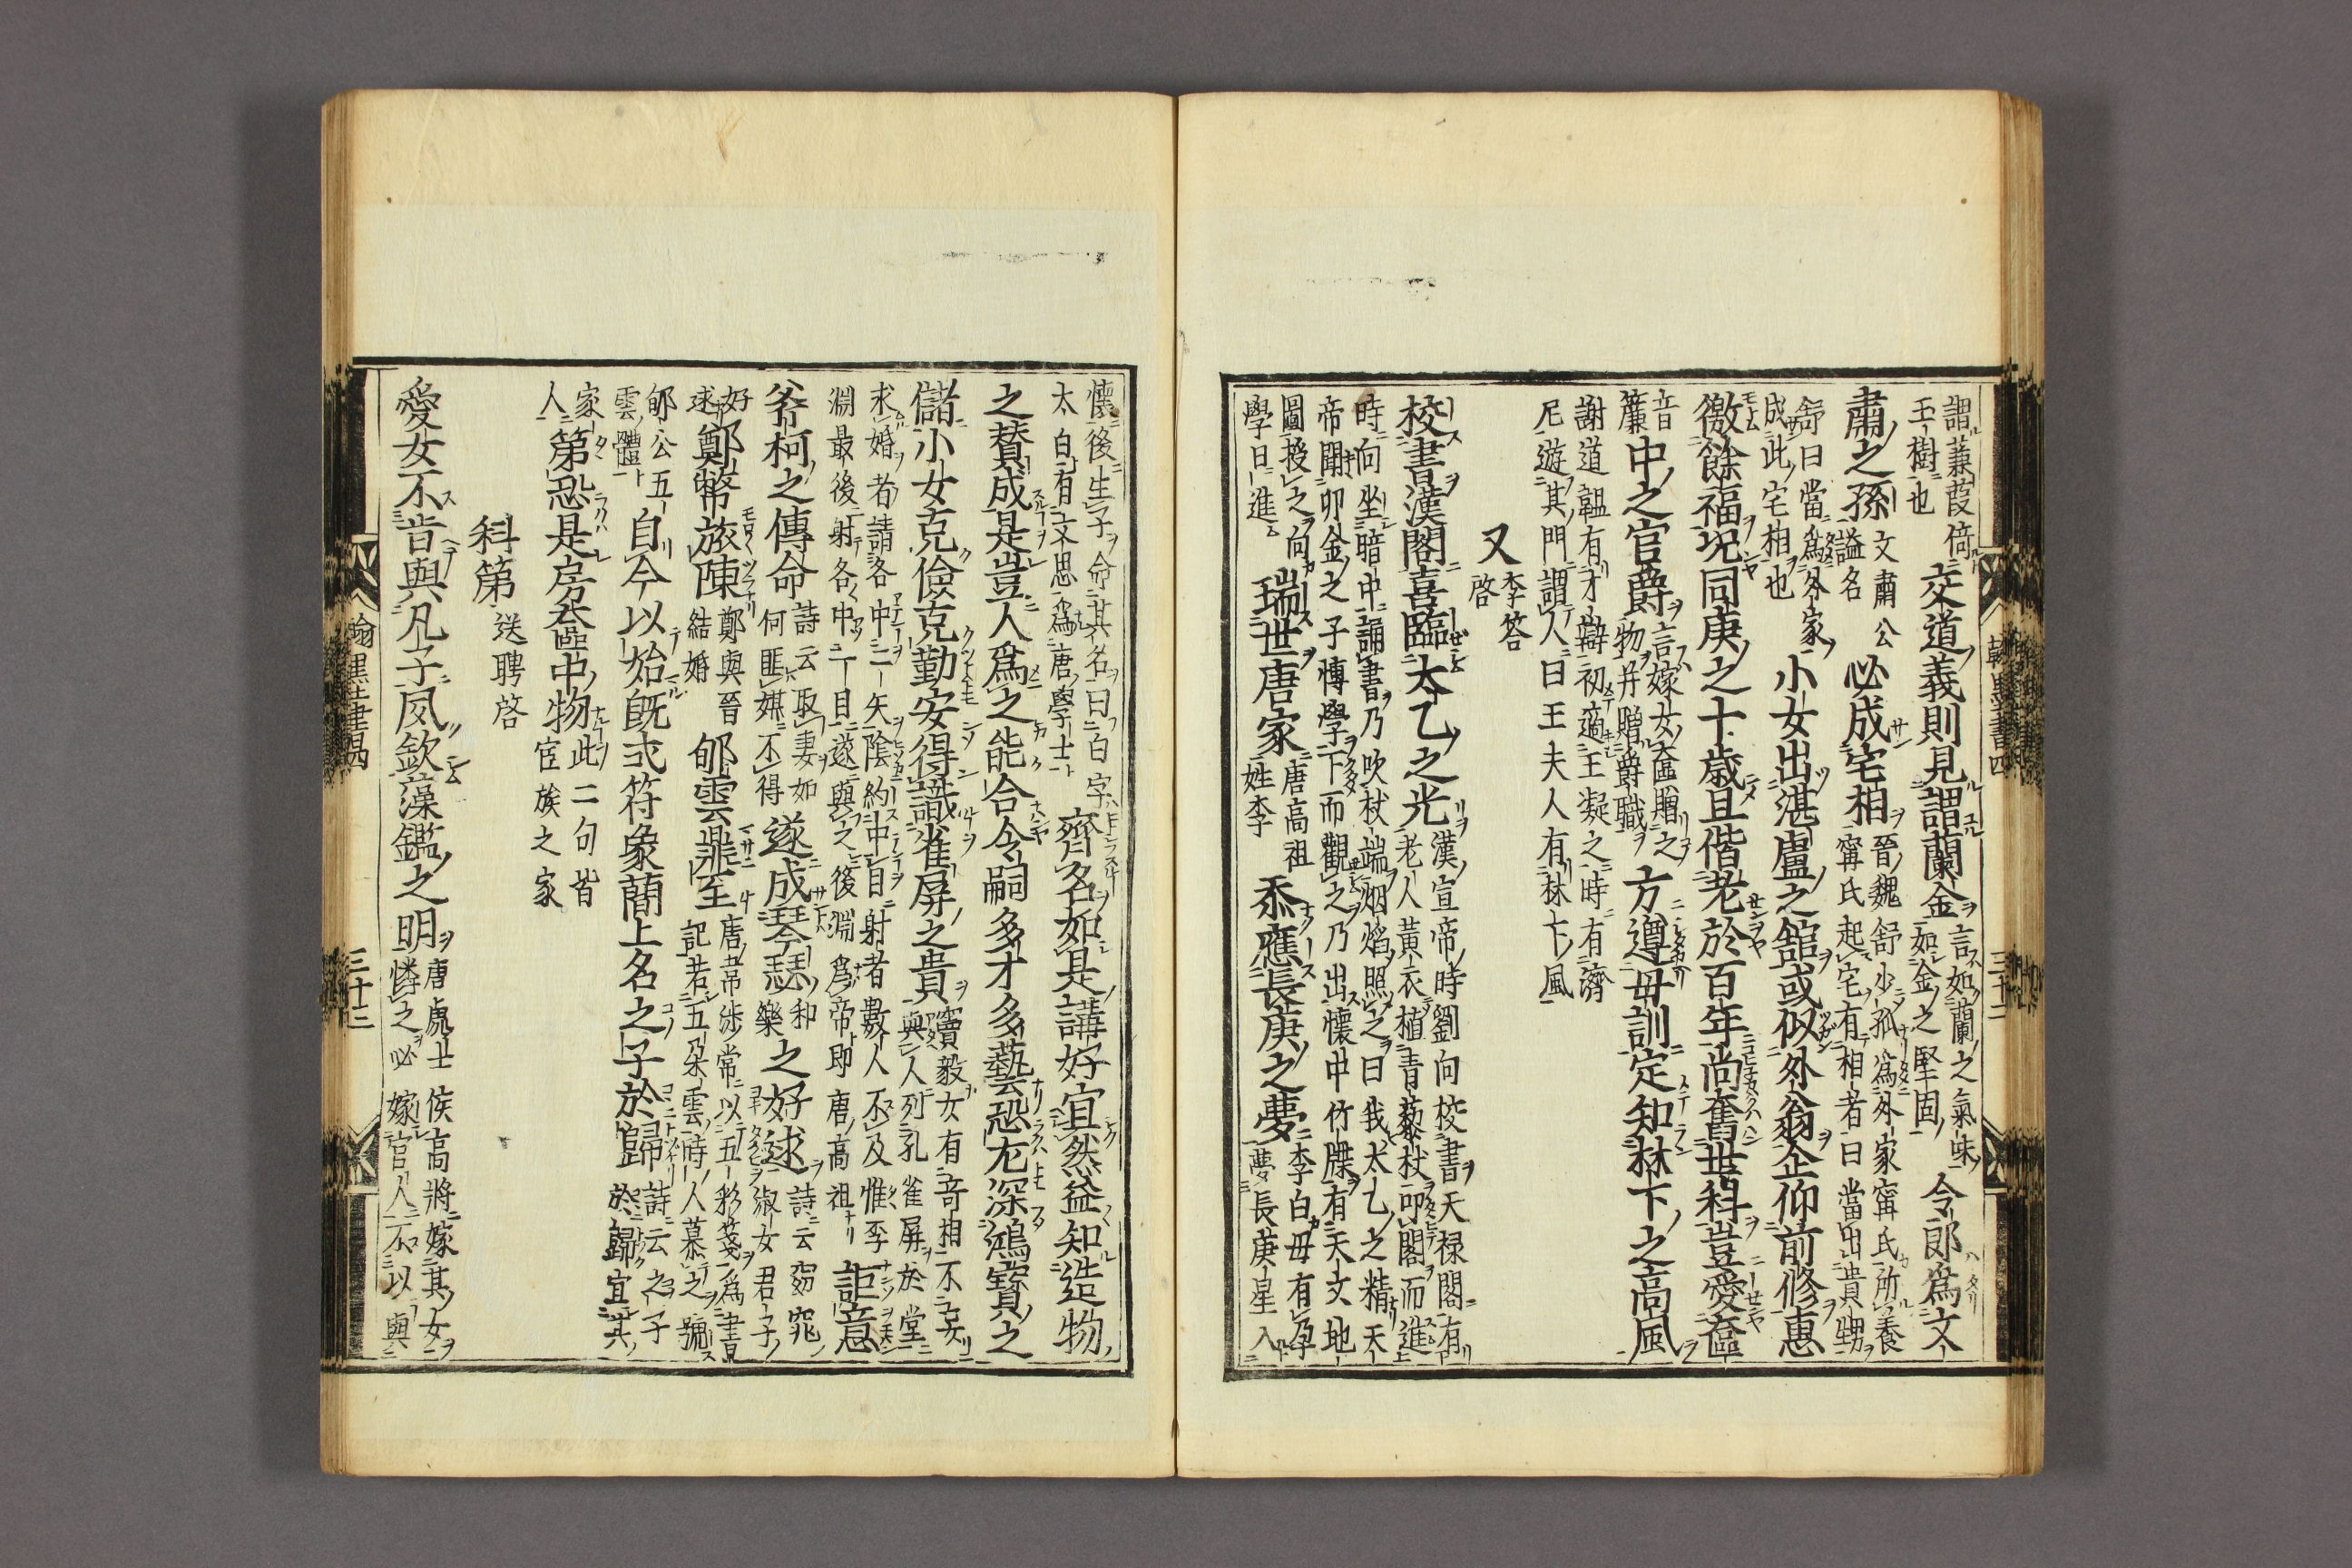 謂蒹葭倚
玉樹也
交道義則見謂蘭金
言如蘭之氣味
如金之堅固
令郎為文
肅之孫
文肅公
謚名
必成宅相
晉魏舒少孤為外家寗氏所養
寗氏起宅有相者曰當出貴甥
舒曰當為外家
成此宅相也
小女出湛盧之舘或似外翁企仰前修惠
徼餘福况同庚之十歲且偕老於百年尚奮世科豈愛奩
音
簾
中之官爵
言嫁女奩贈之
物并贈爵職
方遵毋訓定知林下之高風
謝道韞有才辯初適王凝之時有濟
尼遊其門謂人曰王夫人有林下風
又
李答
啓
校書漢閣喜臨太乙之光
漢宣帝時劉向校書天禄閣有
老人黃衣植青藜杖叩閣而進
時向坐暗中誦書乃吹杖端烟焰照之曰我太乙之精天
帝聞卯金之子博學下而觀之乃出懷中竹牒有天文地
圖授之向
學日進
瑞世唐家
唐高祖
姓李
忝應長庚之夢
李白毋有孕
夢長庚星入
三十二
懷後生子命其名曰白字
太白有文思為唐學士
齊名如是講好宜然益知造物
之賛成是豈人為之能合令嗣多才多藝恐尤深鴻寶之
儲小女克儉克勤安得識雀屏之貴
竇毅女有竒相不妄
與人列孔雀屏於堂
求婚者請各中二矢陰約中目射者數人不及惟李
淵最後射各中一目遂與之後淵為帝即唐高祖
詎意
斧柯之傳命
詩云取妻如
何匪媒不得
遂成琴瑟
和
樂
之好逑
詩云窈窕
淑女君子
好
逑
鄭幣旅陳
鄭與晉
結婚
郇雲鼎至
唐韋涉常以五彩箋為書
記若五朵雲時人慕之號
郇公五
雲體
自今以始旣弍符象蕳上名之子於歸
詩云之子
於歸宜其
家
人
第恐是房奩中物
此二句皆
宦族之家
科第
送聘啓
愛女不肯與凡子夙欽藻鑑之明
唐處士侯高將嫁其女
憐之必嫁官人不以與
翰墨書四
三十三